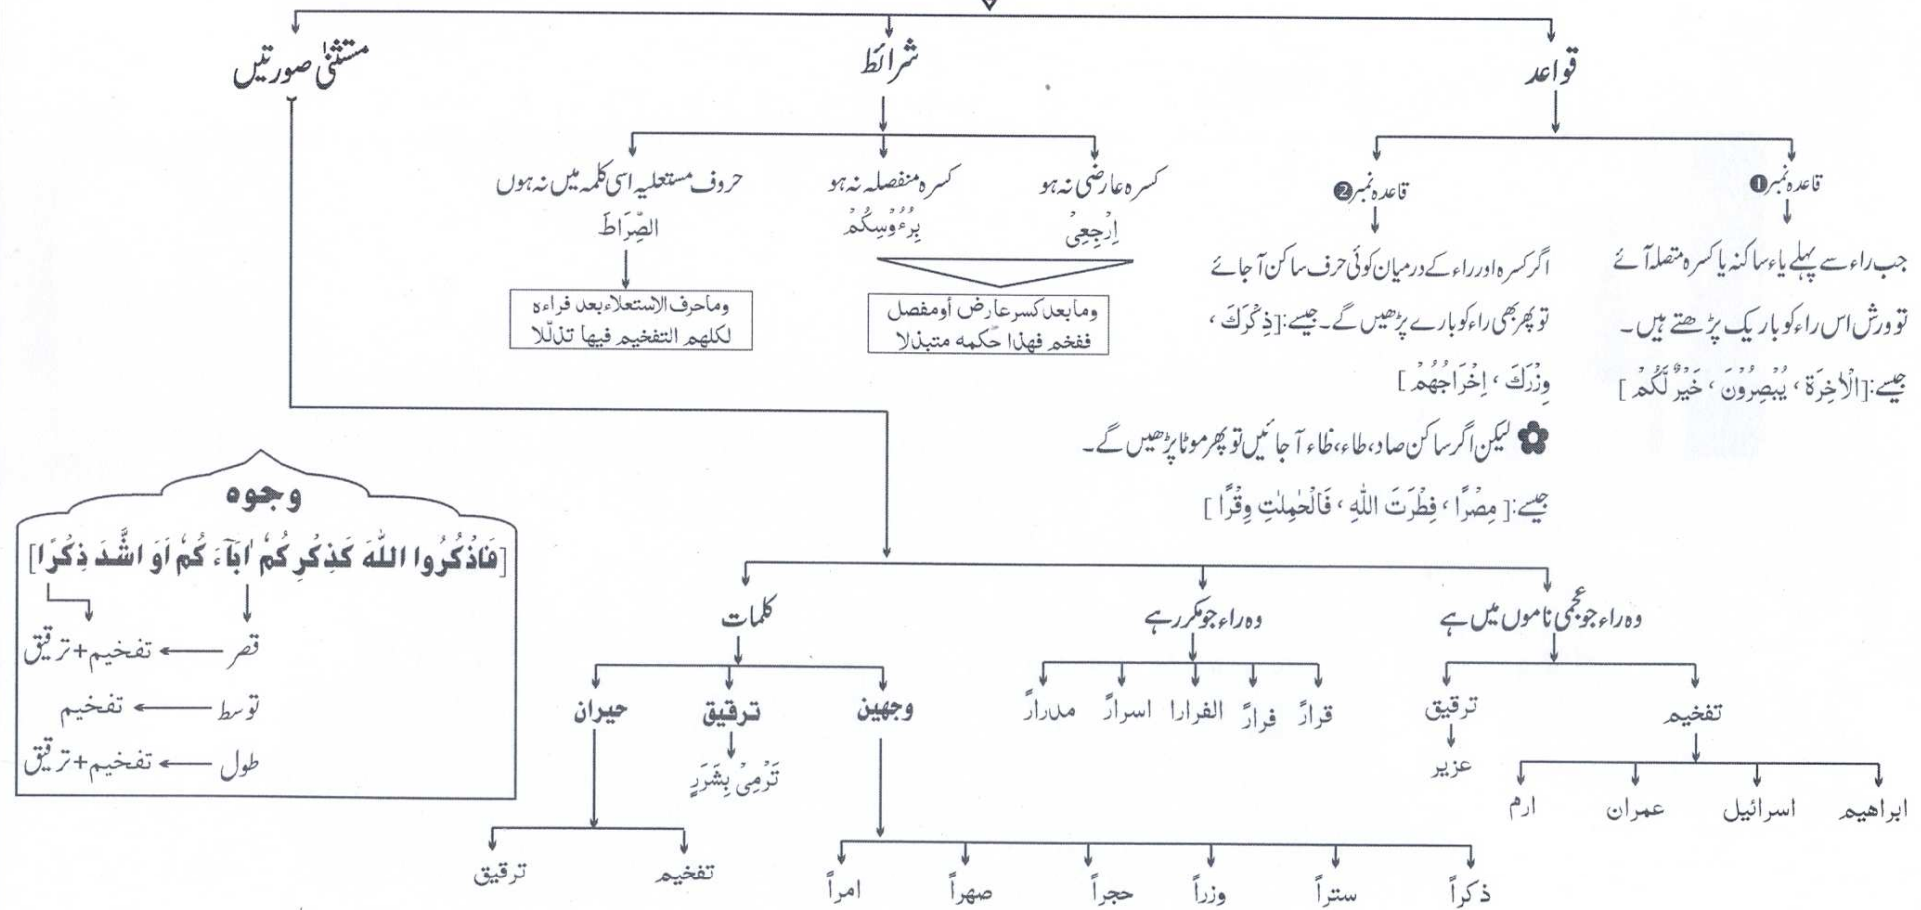 قواعد
شرائط
مستثنیٰ صورتیں
قاعدہ نمبر❶
جب راء سے پہلے یاء ساکنہ یا کسرہ متصلہ آئے
تو ورش اس راء کو باریک پڑھتے ہیں۔
جیسے:[الْاٰخِرَة ، يُبْصِرُوْنَ ، خَيْرٌ لَّكُمْ ]
قاعدہ نمبر❷
اگر کسرہ اور راء کے درمیان کوئی حرف ساکن آ جائے
تو پھر بھی راء کو بارے پڑھیں گے۔ جیسے:[ذِكْرَكَ ،
وِزْرَكَ ، اِخْرَاجُهُمْ ]
✿ لیکن اگر ساکن صاد، طاء، ظاء آ جائیں تو پھر موٹا پڑھیں گے۔
جیسے:[ مِصْرًا ، فِطْرَتَ اللّٰهِ ، فَالْحٰمِلٰتِ وِقْرًا ]
کسرہ عارضی نہ ہو
اِرْجِعِىْ
کسرہ منفصلہ نہ ہو
بِرُءُوْسِكُمْ
وما بعد کسر عارض أو مفصل
ففخم فهذا حکمه متبذلا
حروف مستعلیہ اسی کلمہ میں نہ ہوں
الصِّرَاطَ
وما حرف الاستعلاء بعد فراءه
لکلهم التفخیم فیها تذلّلا
وہ راء جو عجمی ناموں میں ہے
تفخیم
ابراھیم
اسرائیل
عمران
ارم
ترقیق
عزیر
وہ راء جو مکرر ہے
قرارً
فرارً
الفرارا
اسرارً
مدرارً
کلمات
وجھین
ذکراً
ستراً
وزراً
حجراً
صھراً
امراً
ترقیق
تَرْمِىْ بِشَرَرٍ
حیران
تفخیم
ترقیق
وجوہ
[فَاذْكُرُوا اللّٰهَ كَذِكْرِكُمْ اٰبَآءَكُمْ اَوْ اَشَدَّ ذِكْرًا]
قصر ← تفخیم+ترقیق
توسط ← تفخیم
طول ← تفخیم+ترقیق